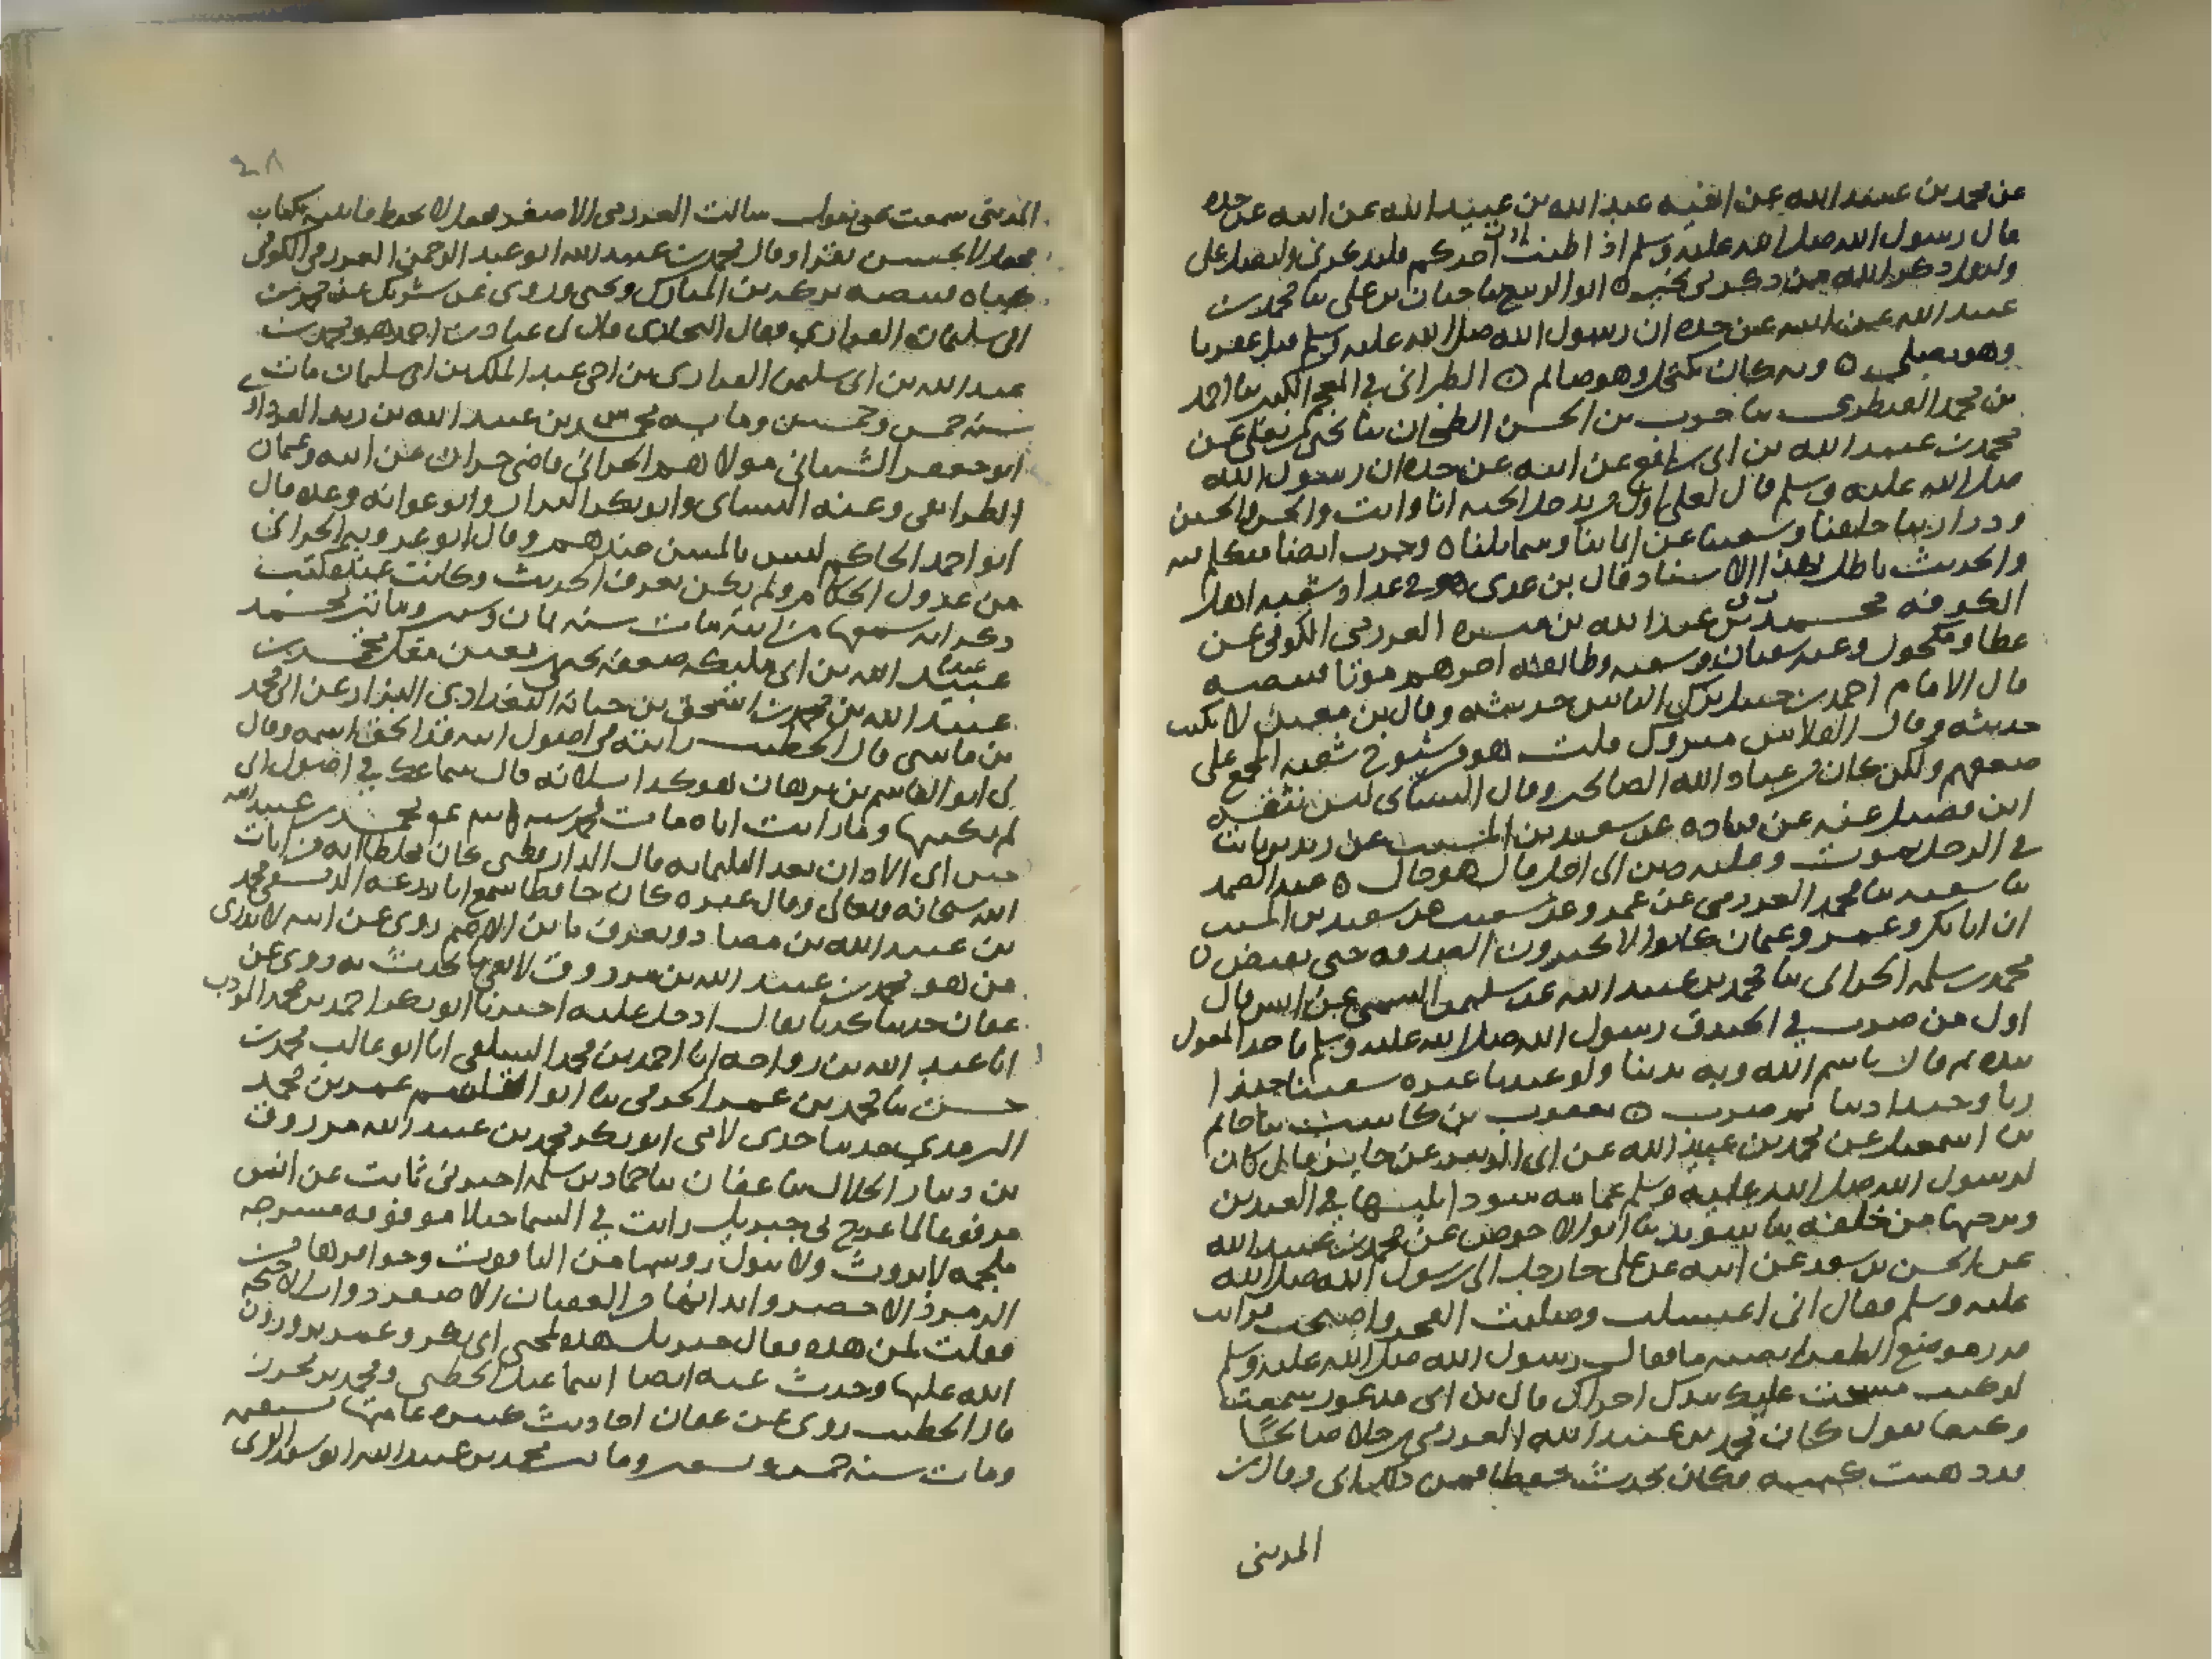 عن محمد بن عبيد الله عن اخيه عبد الله بن عبيد الله عن ابيه عن جده
قال رسول الله صلى الله عليه وسلم اذا طنت اذن احدكم فليذكرني وليصل على
وليقل ذكر الله من ذكرني بخير ابو الربيع ثنا حبان بن على ثنا محمد بن
عبيد الله عن ابيه عن جده ان رسول الله صلى الله عليه وسلم قتل عقربا
وهو يصلي وبه كان يكتحل وهو صائم الطبراني في المعجم الكبير ثنا احمد
بن محمد القنطرى ثنا حرب بن الحسن الطحان ثنا يحيى بن يعلى عن
محمد بن عبيد الله بن ابى رافع عن ابيه عن جده ان رسول الله
صلى الله عليه وسلم قال لعلى اول من يدخل الجنه انا وانت والحسن والحسين
وذرارينا خلفنا وشيعتنا عن ايماننا وشمايلنا وحرب ايضا متكلم فيه
والحديث باطل بهذا الاسناد قال بن عدى هو في عداد شيعه اهل
الكوفه محمد بن عبيد الله بن ميسره العرزمي الكوفي عن
عطا ومكحول وعنه سفيان وشعبه وطائفه اخرهم موتا قبيصه
قال الامام احمد بن حنبل ترك الناس حديثه وقال بن معين لا يكتب
حديثه وقال الفلاس متروك قلت هو من شيوخ شعبه المجمع على
ضعفهم ولكن كان من عباد الله الصالحين وقال النساى ليس بثقه
ابن فضيل عنه عن قتاده عن سعيد بن المسيب عن زيد بن ثابت
في الرجل يموت وعليه دين الى اجل قال هو حال عبد الصمد
ثنا شعبه ثنا محمد العرزمي عن عمرو عن شعيب عن سعيد بن المسيب
ان ابا بكر وعمر وعثمان كانوا لا يجيزون الصدقه حتى تقبض
محمد بن سلمه الحراني ثنا محمد بن عبيد الله عن سليمان التيمي عن انس قال
اول من ضرب في الخندق رسول الله صلى الله عليه وسلم فاخذ المعول
بيده ثم قال باسم الله وبه بدينا ولو عبدنا غيره شقينا حبذا
ربا وحبذا دينا ثم ضرب يعقوب بن كاسب ثنا حاتم
بن اسمعيل عن محمد بن عبيد الله عن ابى الزبير عن جابر قال كان
لرسول الله صلى الله عليه وسلم عمامه سودا يلبسها في العيدين
ويرخيها من خلفه ثنا سويد ثنا ابو الاحوص عن محمد بن عبيد الله
عن الحسن بن سعد عن ابيه عن على جا رجل الى رسول الله صلى الله
عليه وسلم فقال اني اغتسلت وصليت الفجر واصبحت فرايت
قدر موضع الظفر لم يصبه ما فقال رسول الله صلى الله عليه وسلم
لو كنت مسحت عليه بيدك اجزاك قال بن ابى مذعور سمعت
وكيعا يقول كان محمد بن عبيد الله العرزمي رجلا صالحا
قد ذهبت كتبه فكان يحدث حفظا فمن ذلك اتى وقال بن
المديني
٢٨
المديني سمعت يحيى يقول سالت العرزمي الاصغر فجعل لا يحفظ فاتيته بكتاب
فجعل لا يحسن يقرا وقال محمد بن عبيد الله ابو عبد الرحمن العرزمي الكوفي
بن المبارك ويحيى وروى عن شريك عن محمد بن
ابى سليمان العرزمي فقال البخارى قال لى عباد بن احمد هو محمد بن
عبيد الله بن ابى سليمن العرزمى بن اخى عبد الملك بن ابى سليمان مات
سنه خمس وخمسين ومايه محمد بن عبيد الله بن يزيد القردواني
ابو جعفر الشيباني مولاهم الحراني قاضي حران عن ابيه وعثمان
الطرايفي وعنه النساى وابو بكر البزار وابو عوانه وعده قال
ابو احمد الحاكم ليس بالمتين عندهم وقال ابو عروبه الحراني
من عدول الحكام ولم يكن يعرف الحديث وكانت عنده كتب
ذكر انه سمعها من ابيه مات سنه ثمان وستين ومايتين محمد بن
عبيد الله بن ابى مليكه ضعفه يحيى بن معين محمد بن
عبيد الله بن محمد بن اسحق بن حبابه البغدادى البزاز عن ابى محمد
بن ماسى قال الخطيب رايته في اصول ابيه قد الحق اسمه وقال
لى ابو القاسم بن برهان قال سماعك في اصول ابى
لم يكتبها وما رايت اباه مات محمد بن عبيد الله
بعد قال الدارقطنى كان مخلطا انه من ايات
الله سبحانه وتعالى وقال غيره كان حافظا سمع ابا زرعه الدمشقي محمد
بن عبيد الله بن مصاد ويعرف بابن الاصم روى عن ابيه لا يدرى
من هو محمد بن عبيد الله بن مرزوق لا يعي ما يحدث به روى عن
عفان حديثا كذبا يقال ادخل عليه اخبرنا ابو بكر احمد بن محمد المودب
انا عبد الله بن رواحه انا احمد بن محمد السلفي انا ابو غالب محمد بن
حسن ثنا محمد بن عمر الحرمي ثنا ابو القاسم عمر بن محمد
الترمذي حدثنا جدى لامي ابو بكر محمد بن عبيد الله بن مرزوق
بن دينار الخلال ثنا عفان ثنا حماد بن سلمه اخبرني ثابت عن انس
مرفوعا لما عرج بي جبريل رايت في السما خيلا موقوفه مسرجه
ملجمه لا تروث ولا تبول روسها من الياقوت وحوافرها من
الزمرذ الاخضر وابدانها من العقيان الاصفر ذوات الاجنحه
فقلت لمن هذه فقال جبريل هذه لمحبي ابى بكر وعمر يزورون
الله عليها وحدث عنه ايضا اسماعيل الخطبي ومحمد بن مخرم
قال الخطيب روى عن عفان احاديث كثيره عامتها مستقيمه
ومات سنه خمس وتسعين ومايتين محمد بن عبيد الله ابو سعد